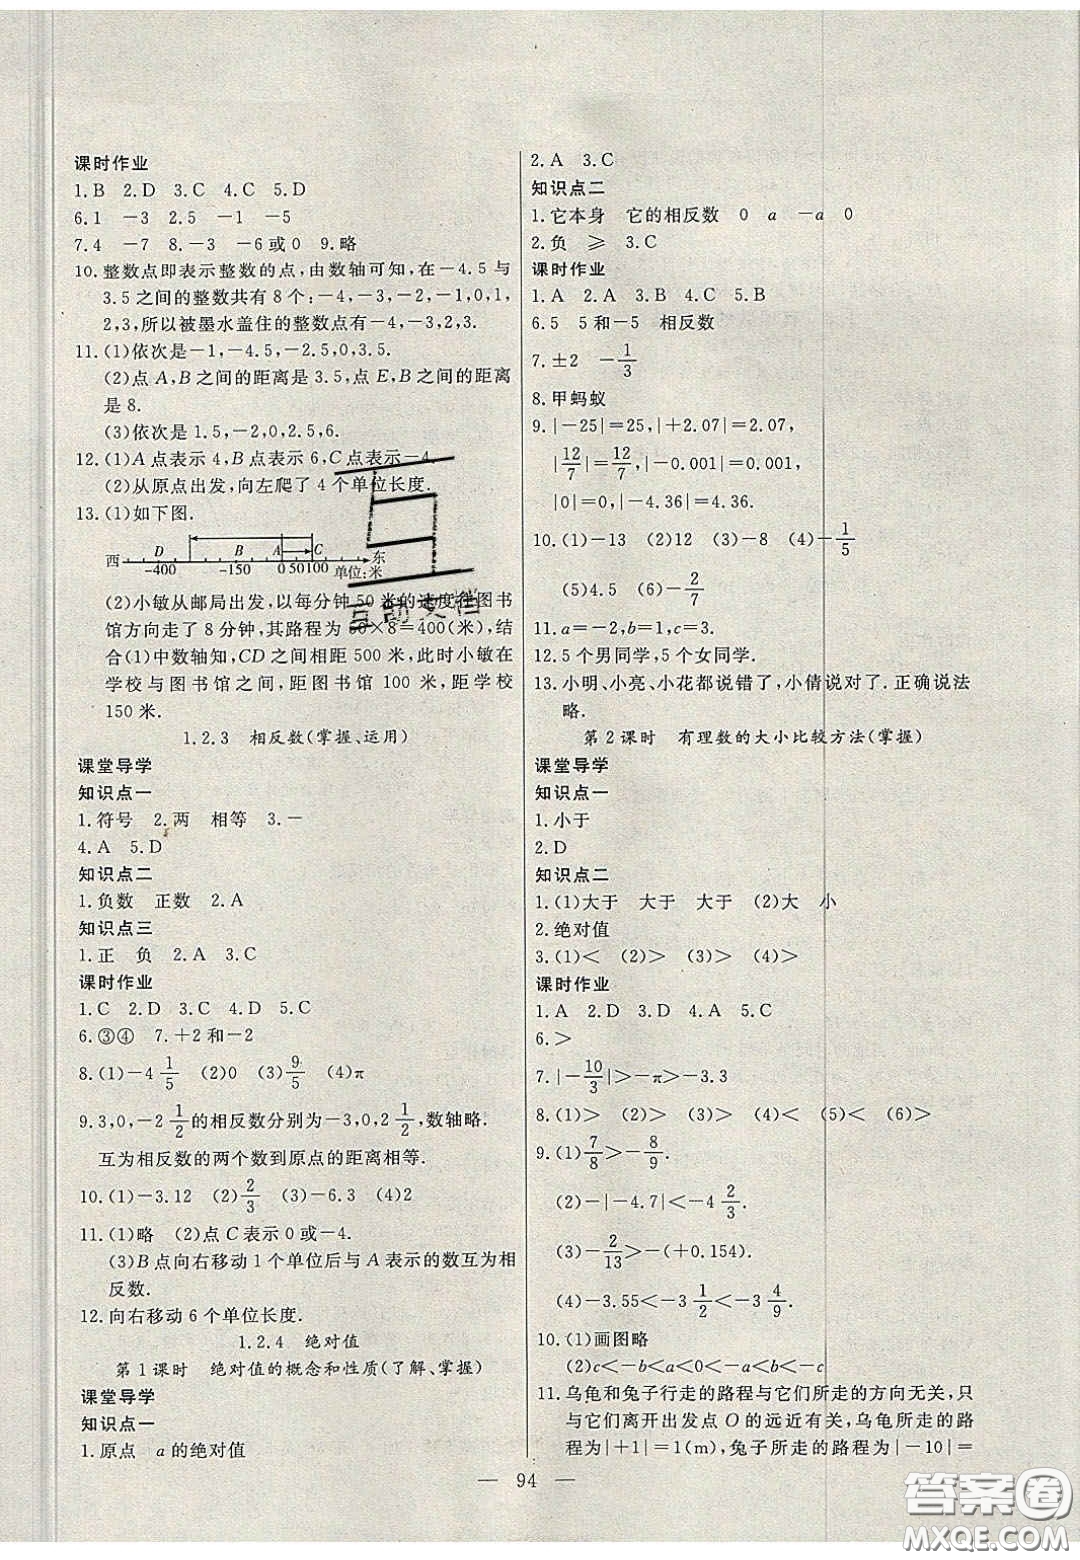 课时作业
1.B 2.D 3.C 4.C 5.D
6.1 -3 2.5 -1 -5
7.4 -7 8.-3 -6或0 9.略
10.整数点即表示整数的点,由数轴可知,在-4.5与
3.5之间的整数共有8个:-4,-3,-2,-1,0,1,
2,3,所以被墨水盖住的整数点有-4,-3,2,3.
11.(1)依次是-1,-4.5,-2.5,0,3.5.
(2)点A,B之间的距离是3.5,点E,B之间的距离
是8.
(3)依次是1.5,-2,0,2.5,6.
12.(1)A点表示4,B点表示6,C点表示-4.
(2)从原点出发,向左爬了4个单位长度.
13.(1)如下图.
D B A C
西 东
-400 -150 0 50 100 单位:米
(2)小敏从邮局出发,以每分钟50米的速度往图书
馆方向走了8分钟,其路程为50×8=400(米),结
合(1)中数轴知,CD之间相距500米,此时小敏在
学校与图书馆之间,距图书馆100米,距学校
150米.
1.2.3 相反数(掌握、运用)
课堂导学
知识点一
1.符号 2.两 相等 3.-
4.A 5.D
知识点二
1.负数 正数 2.A
知识点三
1.正 负 2.A 3.C
课时作业
1.C 2.D 3.C 4.D 5.C
6.③④ 7.+2和-2
8.(1)-4 1/5 (2)0 (3)9/5 (4)π
9.3,0,-2 1/2的相反数分别为-3,0,2 1/2,数轴略.
互为相反数的两个数到原点的距离相等.
10.(1)-3.12 (2)2/3 (3)-6.3 (4)2
11.(1)略 (2)点C表示0或-4.
(3)B点向右移动1个单位后与A表示的数互为相
反数.
12.向右移动6个单位长度.
1.2.4 绝对值
第1课时 绝对值的概念和性质(了解、掌握)
课堂导学
知识点一
1.原点 a的绝对值
2.A 3.C
知识点二
1.它本身 它的相反数 0 a -a 0
2.负 ≥ 3.C
课时作业
1.A 2.A 3.B 4.C 5.B
6.5 5和-5 相反数
7.±2 -1/3
8.甲蚂蚁
9.|-25|=25,|+2.07|=2.07,
|12/7|=12/7,|-0.001|=0.001,
|0|=0,|-4.36|=4.36.
10.(1)-13 (2)12 (3)-8 (4)-1/5
(5)4.5 (6)-2/7
11.a=-2,b=1,c=3.
12.5个男同学,5个女同学.
13.小明、小亮、小花都说错了,小倩说对了.正确说法
略.
第2课时 有理数的大小比较方法(掌握)
课堂导学
知识点一
1.小于
2.D
知识点二
1.(1)大于 大于 大于 (2)大 小
2.绝对值
3.(1)< (2)> (3)> (4)>
课时作业
1.A 2.D 3.D 4.A 5.C
6.>
7.|-10/3|>-π>-3.3
8.(1)> (2)> (3)> (4)< (5)< (6)>
9.(1)7/8>-8/9.
(2)-|-4.7|<-4 2/3.
(3)-2/13>-(+0.154).
(4)-3.55<-3 1/2<-3 4/9.
10.(1)画图略
(2)c<-b<a<-a<b<-c
11.乌龟和兔子行走的路程与它们所走的方向无关,只
与它们离开出发点O的远近有关,乌龟所走的路
程为|+1|=1(m),兔子所走的路程为|-10|=
— 94 —
答案圈
MXQE.COM